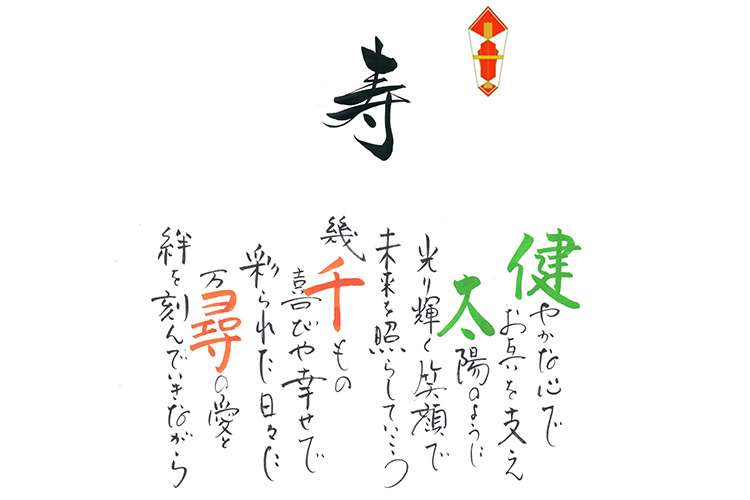 寿
健やかな心で
お互いを支え
太陽のように
光り輝く笑顔で
未来を照らしていこう
幾千もの
喜びや幸せで
彩られた日々に
万尋の愛と
絆を刻んでいきながら